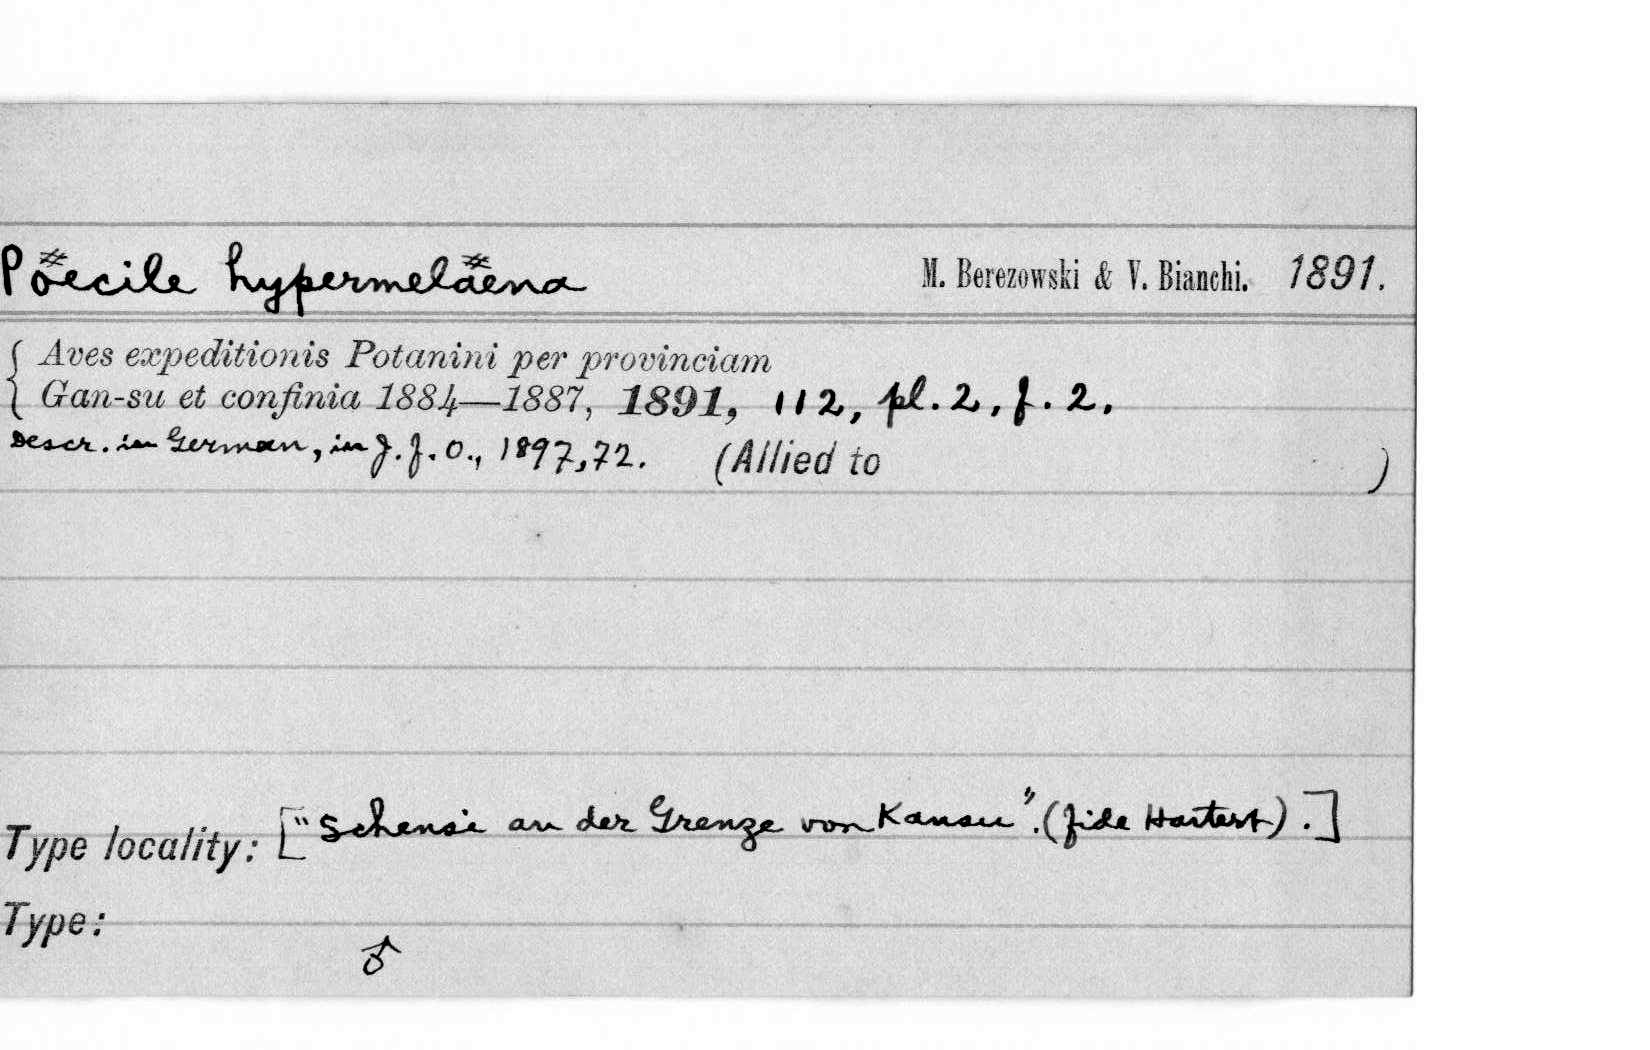 Pöecile hypermeläena M. Berezowski & V. Bianchi. 1891.
Aves expeditionis Potanini per provinciam
Gan-su et confinia 1884—1887, 1891, 112, pl. 2, f. 2.
Descr. in German, in J. f. O., 1897, 72. (Allied to )
Type locality: ["Schensi an der Grenze von Kansu". (fide Hartert).]
Type:
♂